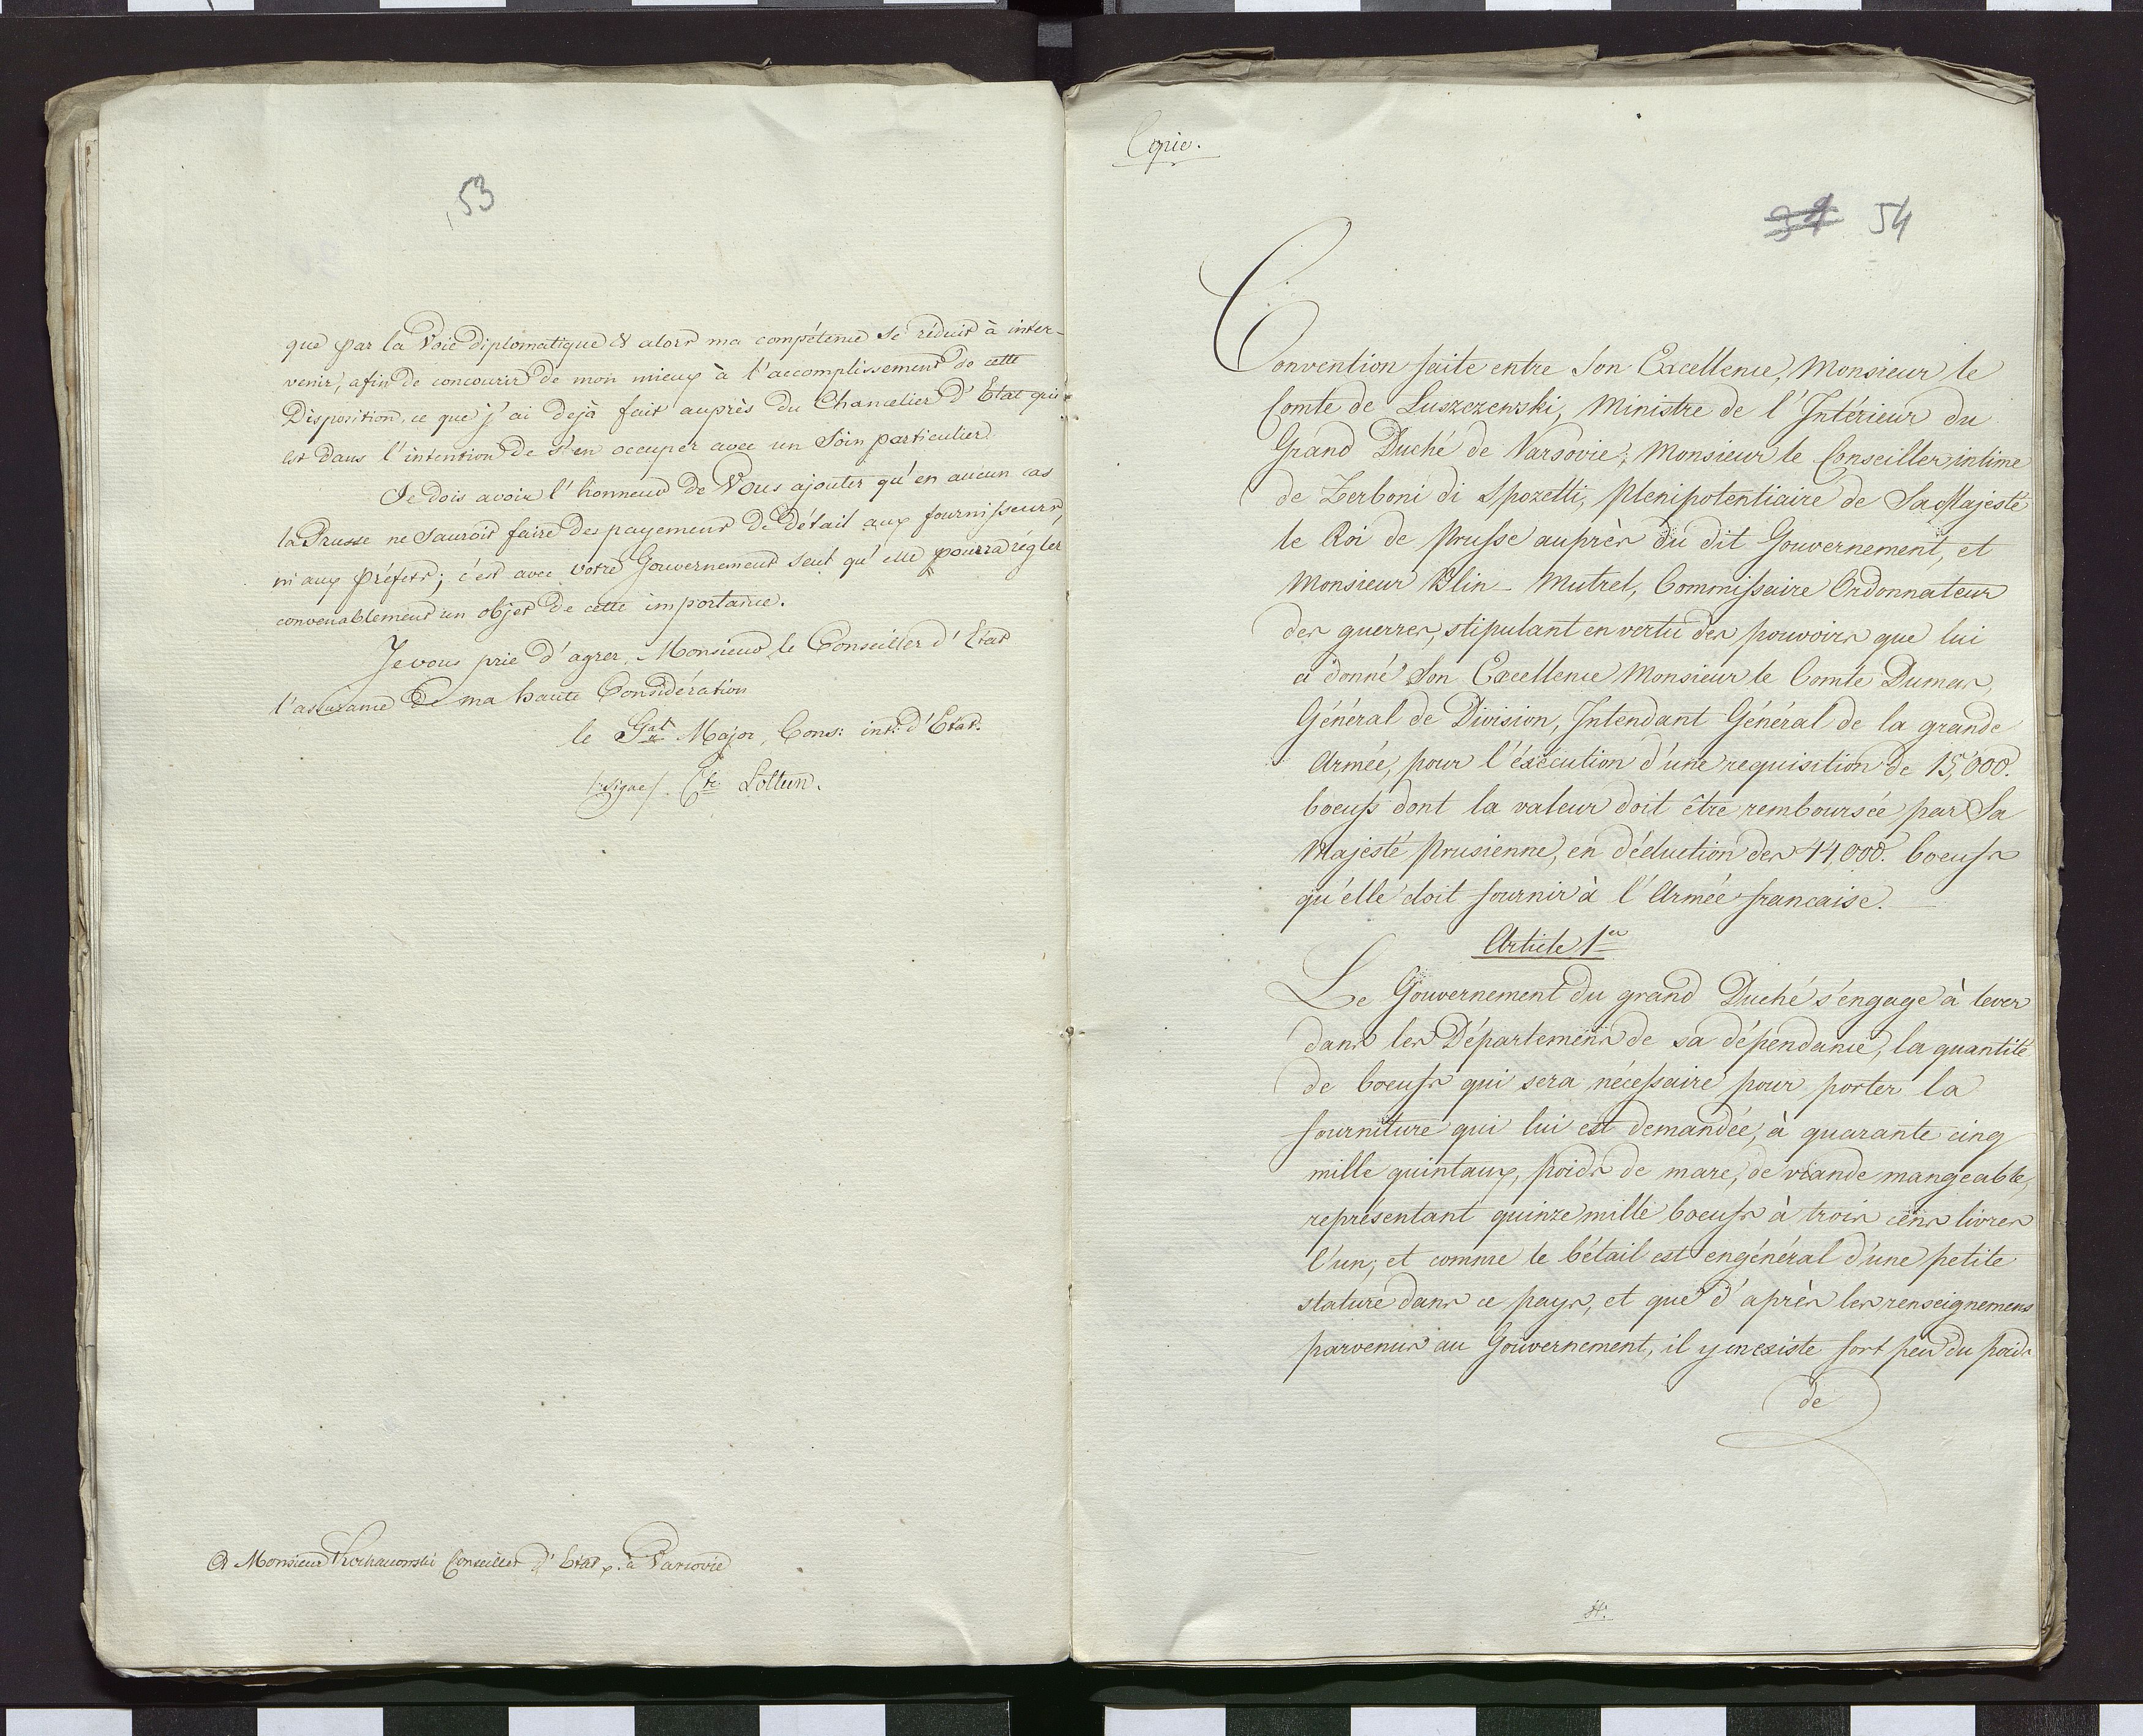 53
que par la Voie diplomatique & alors ma compétence se réduit à inter-
venir, afin de concourir de mon mieux à l'accomplissement de cette
Disposition, ce que j'ai dejà fait auprès du Chancelier d'Etat qui
est dans l'intention de s'en occuper avec un Soin particulier.
Je dois avoir l'honneur de Vous ajouter qu'en aucun cas
la Prusse ne Sauroit faire des payements de détail aux fournisseurs,
ni aux Préfets; c'est avec votre Gouvernement seul qu'elle pourra régler
convenablement un objet de cette importance.
Je vous prie d'agrer, Monsieur le Conseiller d'Etat
l'assurance de ma haute Considération
le Gal Major, Cons: int: d'Etat.
/:signé/. Cte Lottum.
A Monsieur Kochanowski Conseiller d'Etat p. à Varsovie
Copie.
54
Convention faite entre Son Excellence, Monsieur le
Comte de Luszczewski, Ministre de l'Intérieur du
Grand Duché de Varsovie; Monsieur le Conseiller intime
de Zerboni di Spozetti, plenipotentiaire de Sa Majesté
le Roi de Prusse auprès du dit Gouvernement, et
Monsieur Blin-Mutrel, Commissaire Ordonnateur
des guerres, stipulant en vertu des pouvoirs que lui
a donné Son Excellence Monsieur le Comte Dumas,
Général de Division, Intendant Général de la grande
Armée, pour l'éxécution d'une requisition de 15,000.
boeufs dont la valeur doit être remboursée par Sa
Majesté Prusienne, en déduction des 44,000. boeufs
qu'elle doit fournir à l'Armée francaise.
Article 1er
Le Gouvernement du grand Duché s'engage à lever
dans les Départemens de sa dépendance, la quantité
de boeufs qui sera nécessaire pour porter la
fourniture qui lui est demandée, à quarante cinq
mille quintaux, poids de marc, de viande mangeable,
représentant quinze mille boeufs à trois cens livres
l'un; et comme le bétail est engénéral d'une petite
stature dans ce pays, et que d'après les renseignemens
parvenus au Gouvernement, il y en existe fort peu du poids
de